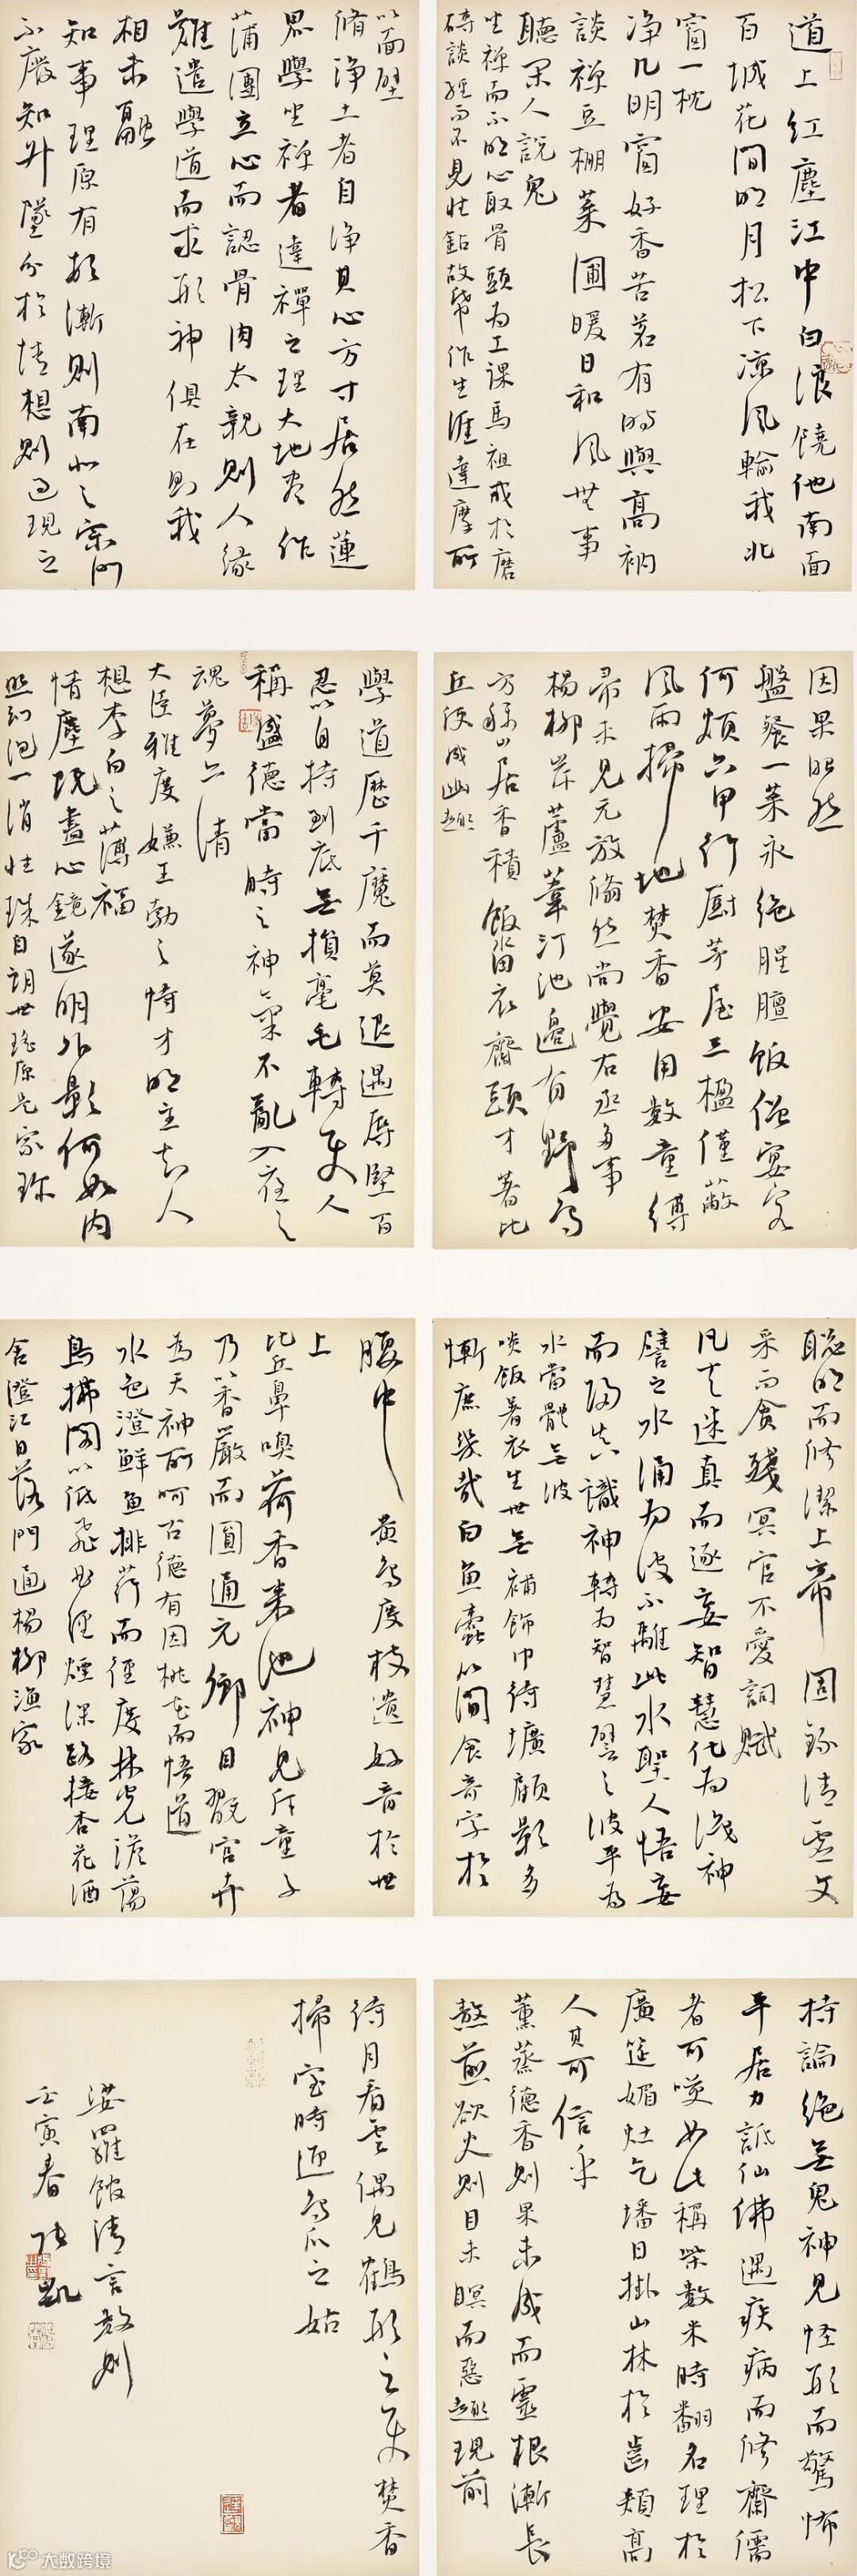 道上红塵江中白浪饒他南面
百城花间明月松下凉风輸我北
窗一枕
净几明窗好香苦茗有时與高衲
談禅豆棚菜圃暖日和风無事
聽闲人説鬼
坐禅而不明心取骨頭为工课馬祖戒於磨
磚談經而不見性鈷故纸作生涯達摩所
以面壁
脩净土者自净其心方寸居然蓮
界學坐禅者達禪之理大地尽作
蒲團立心而認骨肉太親则人缘
難遣學道而求形神俱在则我
相未融
知事理原有頓漸则南北之宗門
不廢知升墜分於情想则過現之
因果昭然
盤餐一菜永绝腥膻饭僧宴客
何烦六甲行厨茅屋三楹僅蔽
风雨掃地焚香安用数童缚
帚未見元放翛然尚覺右丞多事
楊柳岸蘆葦汀池邊有野鸟
方称山居香積饭水田衣齋頭才著比
丘便成幽趣
學道歷千魔而莫退遇辱堅百
忍以自持到底無損毫毛轉使人
稱盛德當時之神氣不亂入夜之
魂夢亦清
大臣雅度嫌王勃之恃才明主知人
想李白之薄福
情塵既盡心鏡遂明外影何如内
照幻泡一消性珠自朗世瑤原是家珍
聪明而修潔上帝固録清虚文
采而贪殘冥官不愛詞賦
凡夫迷真而逐妄智慧化为識神
譬之水涌为波不離此水聖人悟妄
而歸真識神轉为智慧譬之波平为
水當體無波
啖饭著衣生世無補飾巾待壙顧影多
慚庶幾哉白鱼蠹以闻食奇字於
腹中
黄鸟度枝遗好音於世
上
比丘鼻嗅荷香来池神見斥童子
乃以香嚴而圓通元卿目翫宫卉
为天神所呵古德有因桃花而悟道
水色澄鮮鱼排荇而徑度林光澹蕩
鸟拂阁以低飛曲徑煙深路接杏花酒
舍澄江日落門通楊柳漁家
持論绝無鬼神見怪形而驚怖
平居力詆仙佛遇疾病而修齋儒
者可笑如此稱柴数米時翻名理於
廣筵媚灶乞墦日掛山林於齒頰高
人其可信乎
薰蒸德香则果未成而靈根漸長
熬煎欲火则目未瞑而惡趣現前
待月看雲偶見鶴形之使焚香
掃室時迎鸟爪之姑
娑羅馆清言数则
壬寅春 张凯
大数跨境